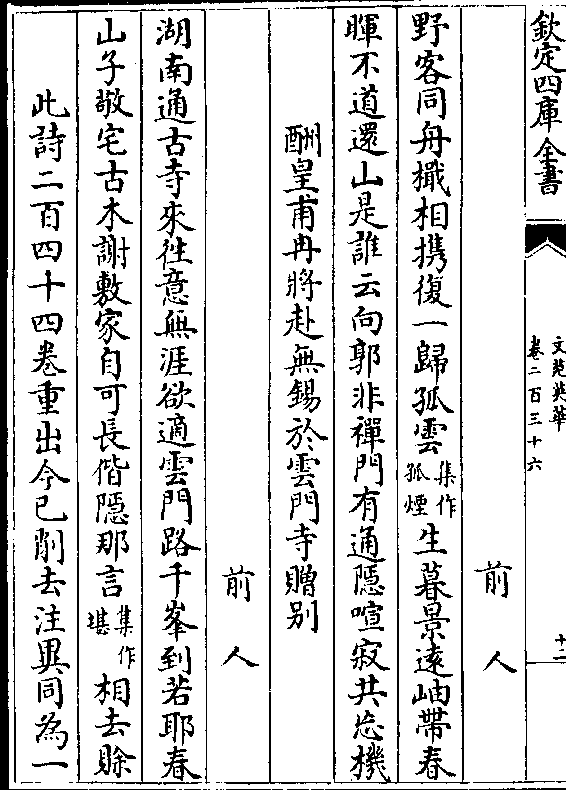 欽定四庫全書
文苑英華
卷二百三十六
十二
前人
野客同舟檝相携復一歸孤雲集作孤煙生暮景遠岫帶春
暉不道還山是誰云向郭非禪門有通隱喧寂共忘機
酬皇甫冉將赴無錫於雲門寺贈别
前人
湖南通古寺來徃意無涯欲適雲門路千峯到若耶春
山子敬宅古木謝敷家自可長偕隠那言集作堪相去賖
此詩二百四十四卷重出今已削去注異同為一